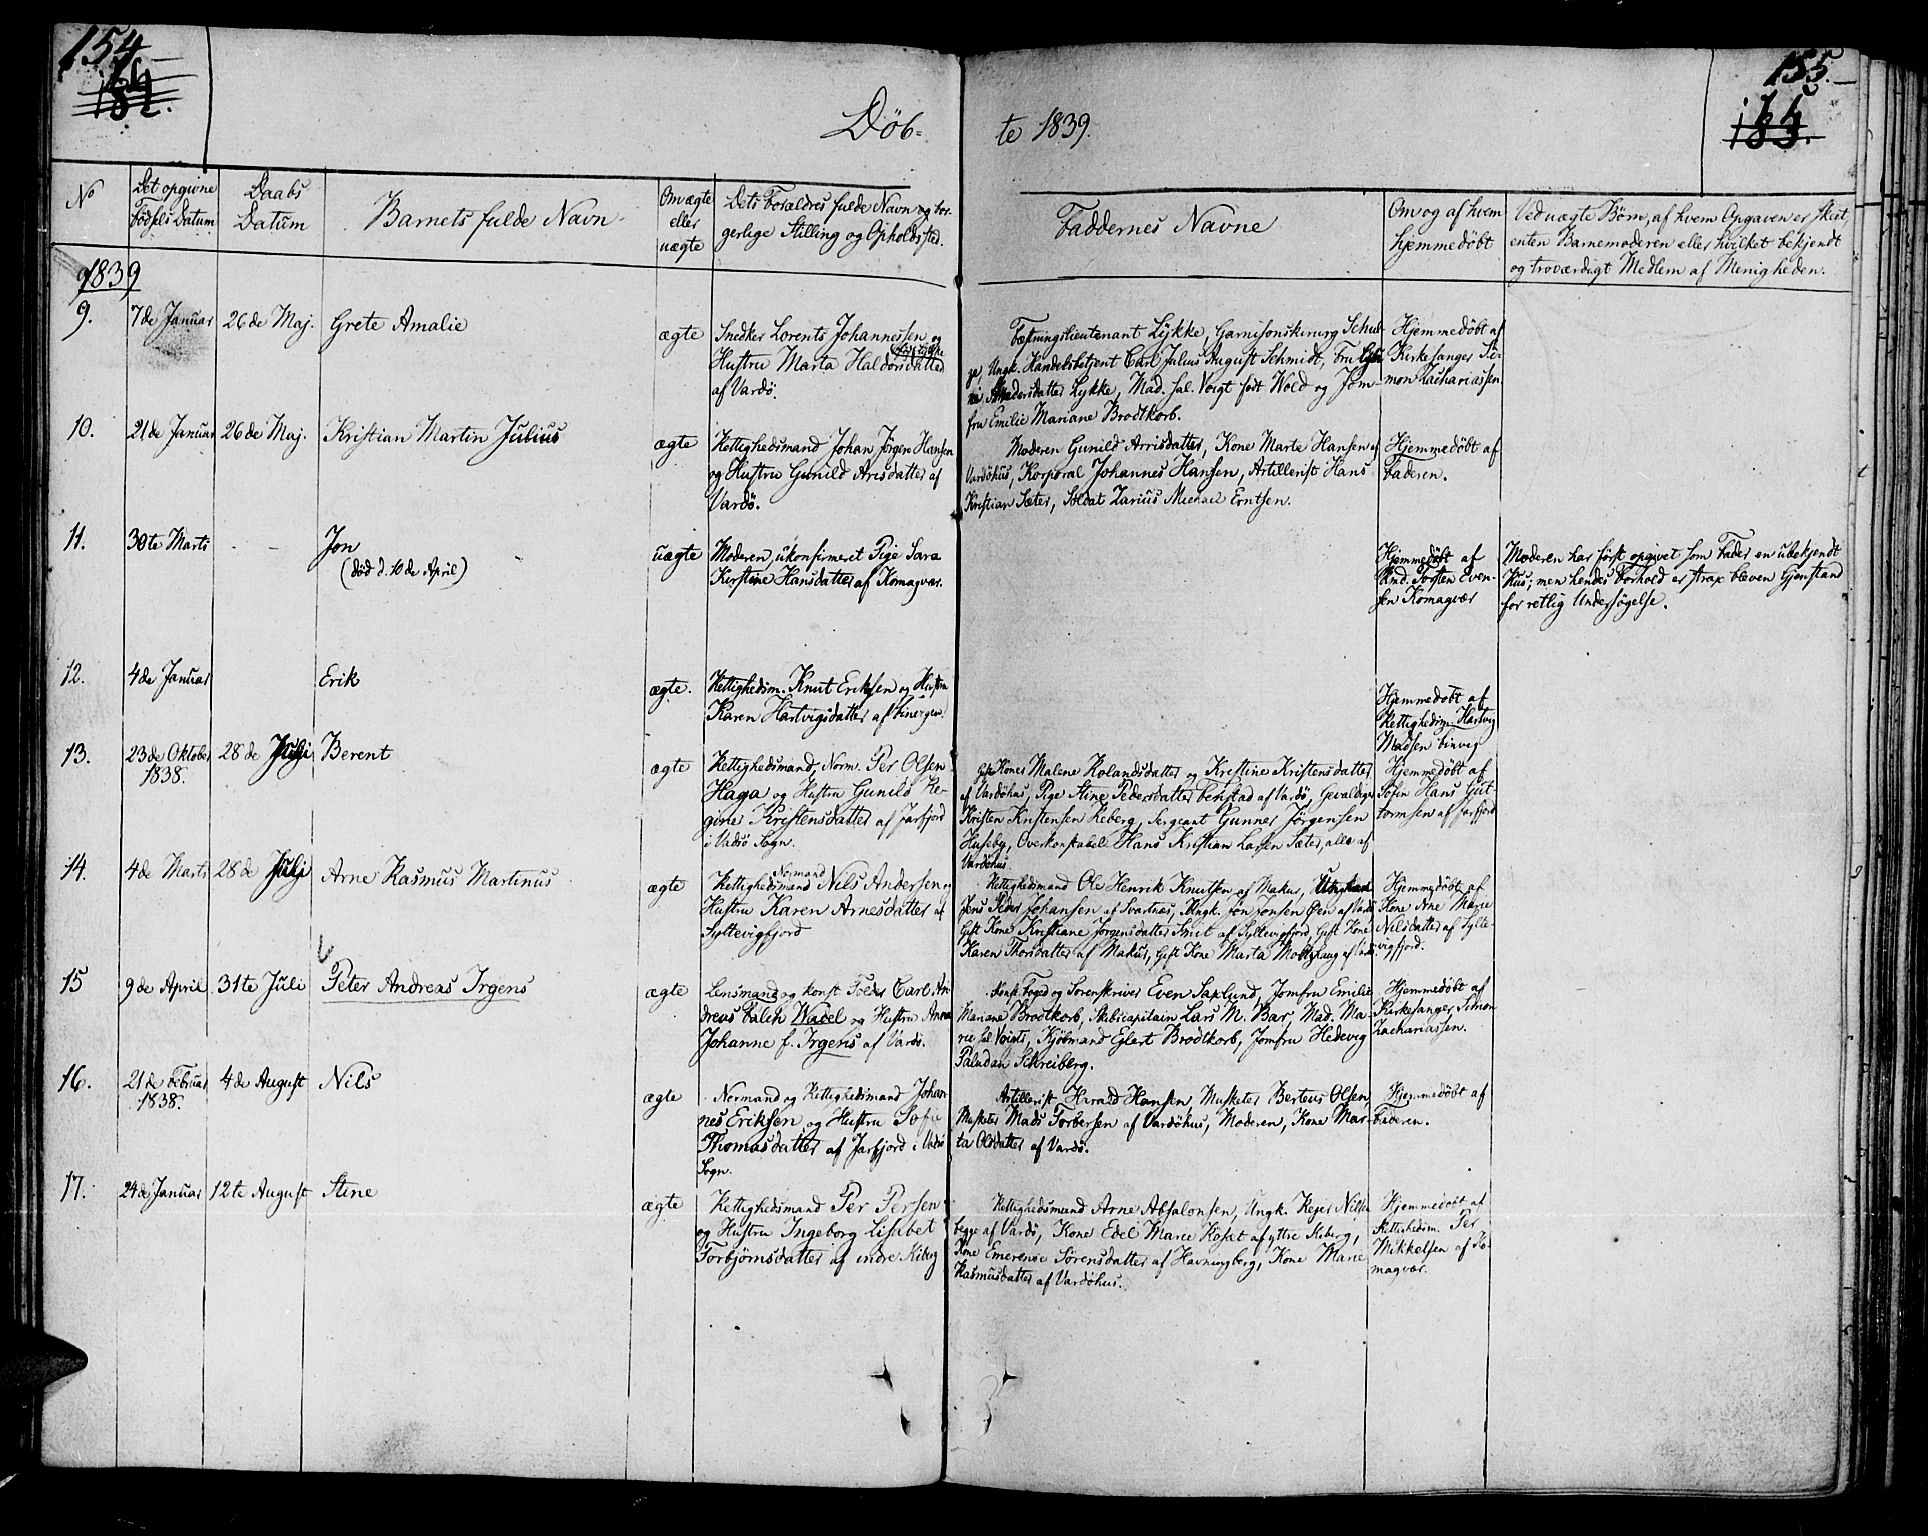 154
155.
Døb-
te 1839.
No
Det opgivne
Fødsels Datum
Daabs
Datum
Barnets fulde Navn
Om ægte
eller
uægte
Dets Forældres fulde Navn og bor-
gerlige Stilling og Opholdssted.
Faddernes Navne
Om og af hvem
hjemmedöbt
Ved uægte Børn, af hvem Opgaven er skeet,
enten Barnemoderen eller hvilket bekjendt
og troværdigt Medlem af Menigheden.
1839
9.
7de Januar
26de Maj.
Grete Amalie
ægte
Snedker Lorents Johannessen og
Hustru Marta Haldorsdatter
af Vardö.
Fæstningslieutenant Lykke, Garnisonskirurg Schul-
ze, Ungk. Handelsbetjent Carl Julius August Schmidt, Fru
Andersdatter Lykke, Mad. sal. Voigt født Wold og Jom-
fru Emilie Mariane Brodtkorb.
Hjemmedöbt af
Kirkesanger Si-
mon Zachariassen
10.
21de Januar
26de Maj.
Kristian Martin Julius
ægte
Rettighedsmand Johan Jörgen Hansen
og Hustru Gunild Arisdatter af
Vardö.
Moderen Gunild Arrisdatter, Kone Marte Hansen af
Vardöhus, Korporal Johannes Hansen, Artillerist Hans
Kristian Sæter, Soldat Zarius Michael Erntsen.
Hjemmedöbt af
Faderen.
11.
30te Marts
Jon
(död d. 10de April)
uægte
Moderen, ukonfirmeret Pige Sara
Kirstine Hansdatter af Komagvær.
Hjemmedöbt af
Torsten Even-
sen Komagvær
Moderen har først opgivet som Fader en ubekjendt
Rus; men hendes Forhold er strax bleven Gjenstand
for retlig Undersögelse.
12.
4de Januar
Erik
ægte.
Rettighedsm. Knut Eriksen og Hustru
Karen Hartvigsdatter af
Hjemmedöbt af
Rettighedsm. Hartvig
Madsen
13.
23de Oktober
1838.
28de Juli
Berent
ægte
Rettighedsmand, Norm. Per Olsen
Haga og Hustru Gunild Re-
gine Kristensdatter af Jarfjord
i Vadsö Sogn.
Gifte Koner Malene Rolandsdatter og Kristine Kristensdatter
af Vardöhus, Pige Stine Pedersdatter Benstad af Vardö, Gevaldiger
Kristen Kristensen Reberg, Sergeant Gunner Jörgensen
Huseby, Overkonstabel Hans Kristian Larsen Sæter, alle af
Vardöhus.
Hjemmedöbt af
Hans Gut-
tormsen af Jarfjord
14.
4de Marts
28de Juli
Arne Rasmus Martinus
ægte
Normand
Rettighedsmand Nils Andersen og
Hustru Karen Arnesdatter af
Syltevigfjord
Rettighedsmand Ole Henrik Knutsen af Makur, Ungkarl
Jens Peder Johansen af Svartnæs, Ungk. Jon Jonsen Öen af Vardö
Gift Kone Kristiane Jörgensdatter Smit af Syltevigfjord, Gift Kone
Karen Thorsdatter af Makur, Gift Kone Marta
Hjemmedöbt af
Kone Ane Marie
Nilsdatter af Sylte-
vigfjord.
15
9de April
31te Juli
Peter Andreas Irgens
ægte
Lensmand og konst. Carl An-
dreas Falch Wadel og Hustru Anna
Johanne f. Irgens af Vardö.
Konst. Foged og Sorenskriver Even Saxlund, Jomfru Emilie
Mariane Brodtkorb, Skibscapitain Lars M. Bar, Mad. Ma-
rie sal. Voigts, Kjöbmand Eglert Brodtkorb, Jomfru Hedevig
Paludan Schreiberg.
Hjemmedöbt af
Kirkesanger Simon
Zachariassen.
16.
21de Februar
1838.
4de August
Nils
ægte
Normand og Rettighedsmand Johan-
nes Eriksen og Hustru Sofie
Thomasdatter af Jarfjord i Vadsö
Sogn.
Artillerist Harald Hansen Musketer Berteus Olsen
Musketer Mads Torbersen af Vardöhus, Moderen, Kone Mar-
ta Olsdatter af Vardö.
Hjemmedöbt af
Faderen.
17.
24de Januar
12te August
Stine
ægte
Rettighedsmand Per Persen
og Hustru Ingeborg Lisabet
Torbjörnsdatter af indre Kiberg
Rettighedsmand Arne Absalonsen, Ungk. Rejer Nilsen
begge af Vardö, Kone Edel Marie Roset af yttre Kiberg,
Kone Emerense Sörensdatter af Havningberg, Kone Marie
Rasmusdatter af Vardöhus.
Hjemmedöbt af
Rettighedsm. Per
Mikkelsen af Ko-
magvær.